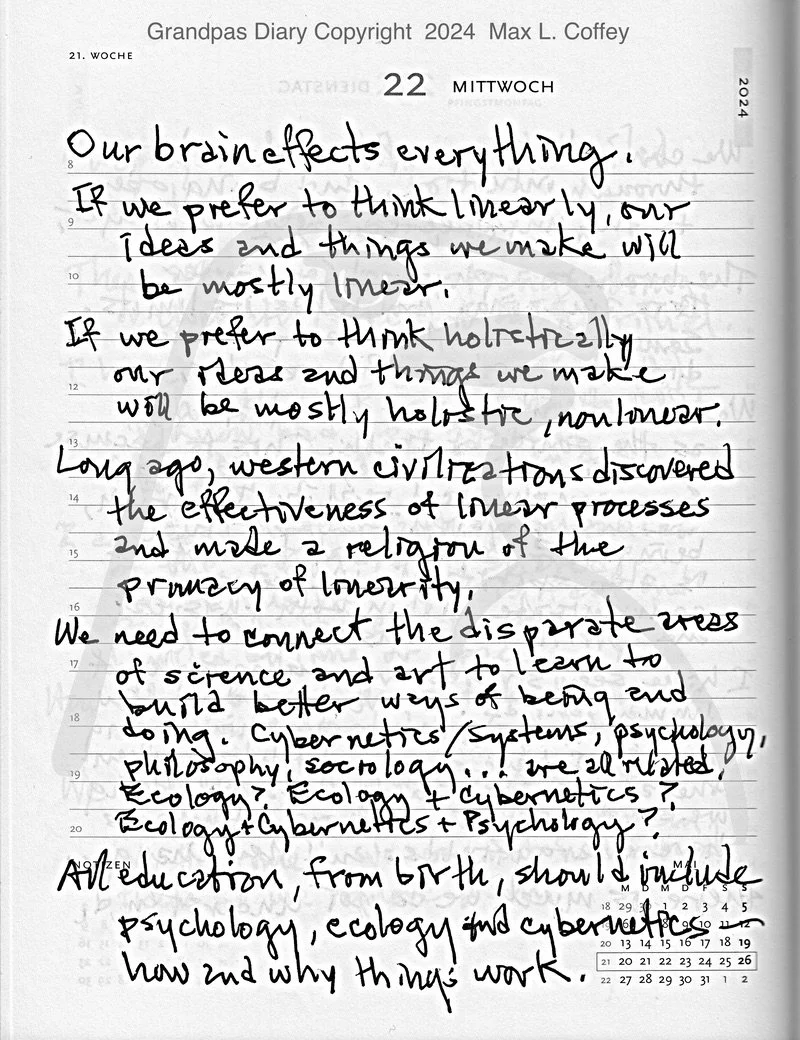 Grandpas Diary Copyright 2024 Max L. Coffey
21. WOCHE
22 MITTWOCH
2024
Our brain effects everything.
8
If we prefer to think linearly, our
9
ideas and things we make will
10
be mostly linear.
If we prefer to think holistically
our ideas and things we make
12
will be mostly holistic, nonlinear.
13
Long ago, western civilizations discovered
14
the effectiveness of linear processes
15
and made a religion of the
primacy of linearity.
16
We need to connect the disparate areas
17
of science and art to learn to
build better ways of being and
18
doing. Cybernetics/Systems, psychology,
philosophy, sociology... are all related.
19
Ecology? Ecology + Cybernetics?
Ecology + Cybernetics + Psychology?
20
NOTIZEN
MAI
All education, from birth, should include
M D M D F S S
18 29 30 1 2 3 4 5
psychology, ecology and cybernetics —
19 6 8 9 10 11 12
20 13 14 15 16 17 18 19
how and why things work.
21 20 21 22 23 24 25 26
22 27 28 29 30 31 1 2